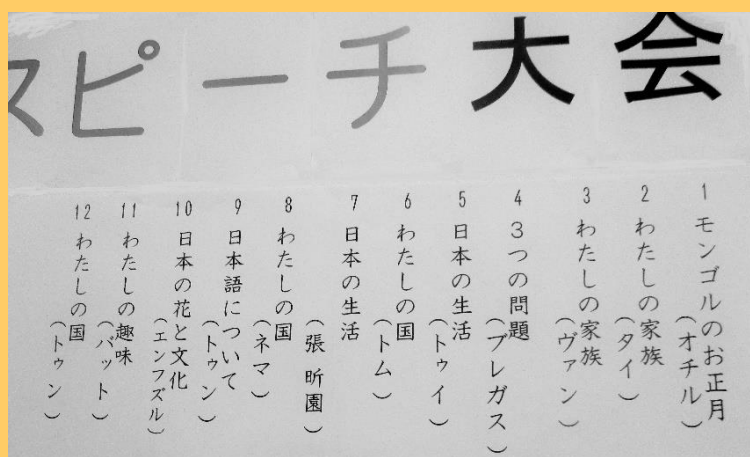 スピーチ大会
1 モンゴルのお正月
(オチル)
2 わたしの家族
(タイ)
3 わたしの家族
(ヴァン)
4 3つの問題
(プレガス)
5 日本の生活
(トゥイ)
6 わたしの国
(トム)
7 日本の生活
(張昕園)
8 わたしの国
(ネマ)
9 日本語について
(トゥン)
10 日本の花と文化
(エンフズル)
11 わたしの趣味
(バット)
12 わたしの国
(トゥン)